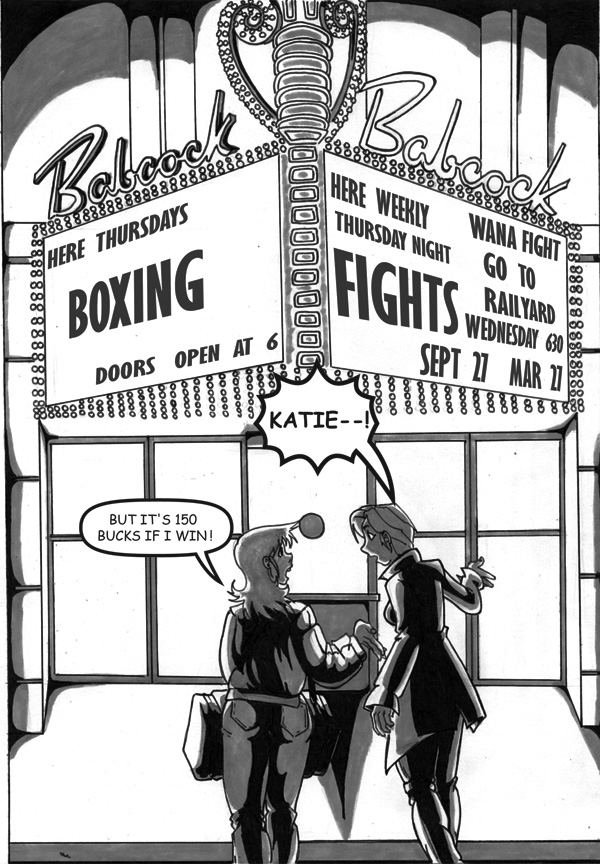 Babcock
HERE THURSDAYS
BOXING
DOORS OPEN AT 6
Babcock
HERE WEEKLY
THURSDAY NIGHT
FIGHTS
WANA FIGHT
GO TO
RAILYARD
WEDNESDAY 630
SEPT 27 MAR 27
KATIE--!
BUT IT'S 150
BUCKS IF I WIN!